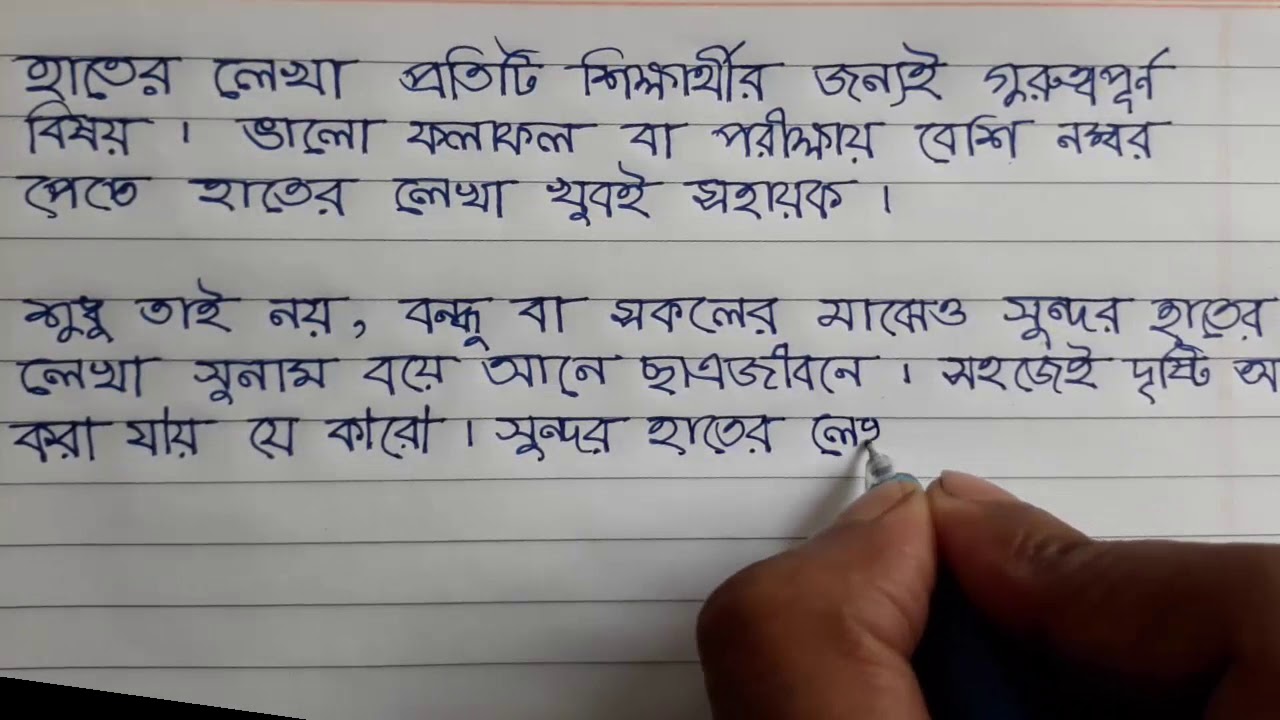 হাতের লেখা প্রতিটি শিক্ষার্থীর জন্যই গুরুত্বপূর্ন
বিষয় । ভালো ফলাফল বা পরীক্ষায় বেশি নম্বর
পেতে হাতের লেখা খুবই সহায়ক ।
শুধু তাই নয়, বন্ধু বা সকলের মাঝেও সুন্দর হাতের
লেখা সুনাম বয়ে আনে ছাত্রজীবনে । সহজেই দৃষ্টি
করা যায় যে কারো । সুন্দর হাতের